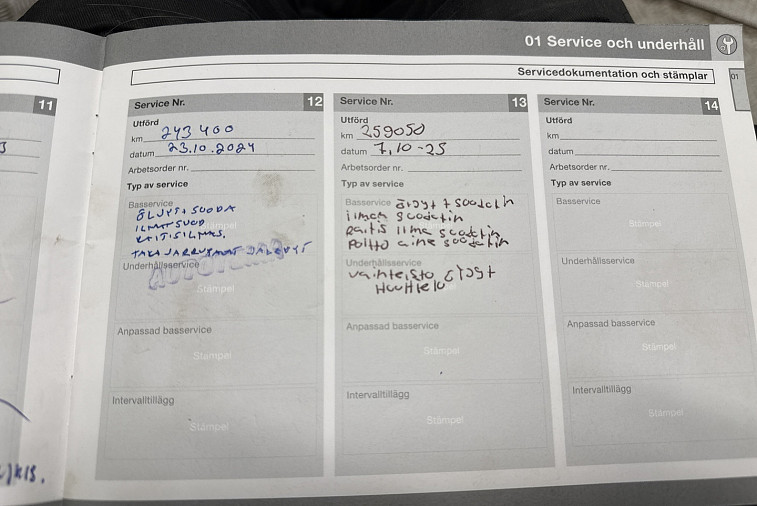 01 Service och underhåll
Servicedokumentation och stämplar
01
11
Service Nr. 12
Utförd
km 243 400
datum 23.10.2024
Arbetsorder nr.
Typ av service
Basservice
ÖLJYT + SUODA
ILMAT SUOD
RAITISILMAS.
TAKA JARRUPALAT JA LEVYT
Underhållsservice
Stämpel
Anpassad basservice
Stämpel
Intervalltillägg
Stämpel
Service Nr. 13
Utförd
km 259050
datum 7.10-25
Arbetsorder nr.
Typ av service
Basservice öljyt + suodatin
ilman suodatin
Raitis ilma suodatin
Poltto aine suodatin
Underhållsservice
vaihteisto öljyt
Huuhtelu
Anpassad basservice
Stämpel
Intervalltillägg
Stämpel
Service Nr. 14
Utförd
km
datum
Arbetsorder nr.
Typ av service
Basservice
Stämpel
Underhållsservice
Stämpel
Anpassad basservice
Stämpel
Intervalltillägg
Stämpel